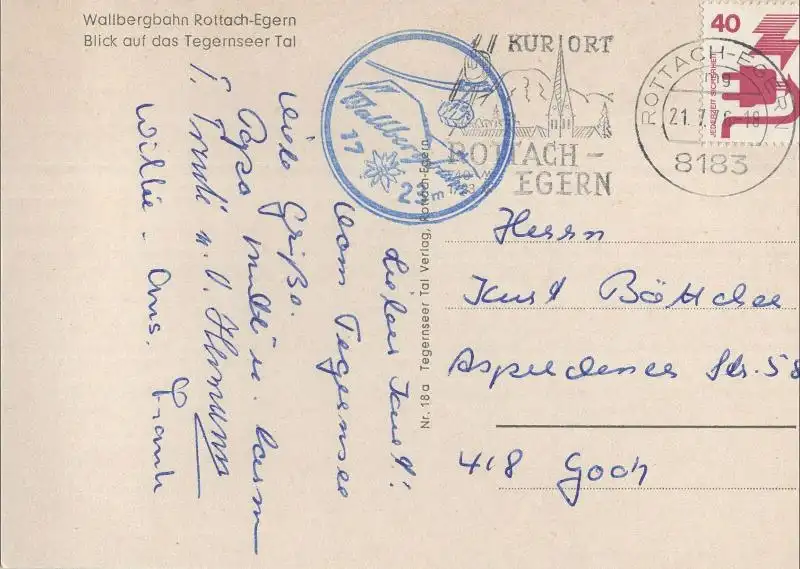 Wallbergbahn Rottach-Egern
Blick auf das Tegernseer Tal
Wallbergbahn
17 23 m
KURORT
ROTTACH-
EGERN
ROTTACH-EGERN
21.7.76-18
8183
40
JEDERZEIT SICHERHEIT
Lieber Kurt!
Vom Tegernsee
viele Grüße.
Papa Mutti u.
T. Trudi u. O. Hermann
Willie - Ans.
Nr. 18a Tegernseer Tal Verlag, Rottach-Egern
Herrn
Kurt Böttcher
Asperdener Str. 58
418 Goch